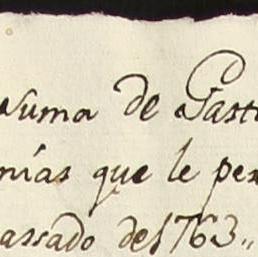 suma de Gasto
nías que le per
assado del 1763.,